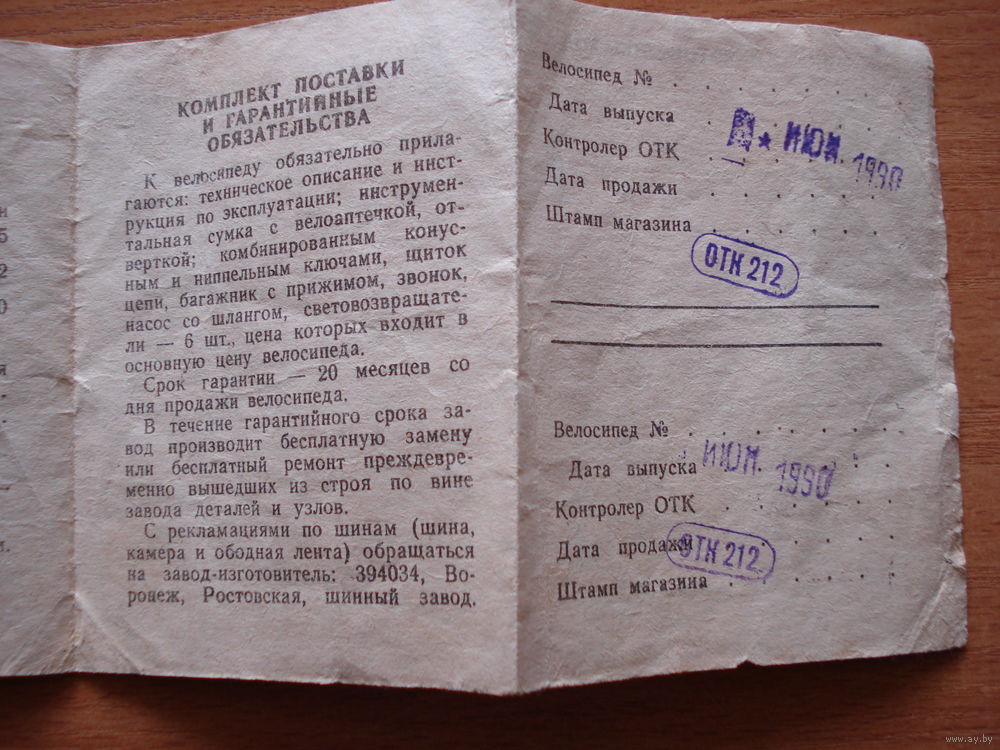 КОМПЛЕКТ ПОСТАВКИ
И ГАРАНТИЙНЫЕ
ОБЯЗАТЕЛЬСТВА
К велосипеду обязательно прила-
гаются: техническое описание и инст-
рукция по эксплуатации; инструмен-
тальная сумка с велоаптечкой, от-
верткой; комбинированным конус-
ным и ниппельным ключами, щиток
цепи, багажник с прижимом, звонок,
насос со шлангом, световозвращате-
ли — 6 шт., цена которых входит в
основную цену велосипеда.
Срок гарантии — 20 месяцев со
дня продажи велосипеда.
В течение гарантийного срока за-
вод производит бесплатную замену
или бесплатный ремонт преждевре-
менно вышедших из строя по вине
завода деталей и узлов.
С рекламациями по шинам (шина,
камера и ободная лента) обращаться
на завод-изготовитель: 394034, Во-
ронеж, Ростовская, шинный завод.
Велосипед № . . . . . . .
Дата выпуска . . . . . .
ИЮН. 1990
Контролер ОТК . . . . . .
Дата продажи . . . . . .
Штамп магазина . . . . . .
ОТК 212
Велосипед № . . . . . . .
Дата выпуска ИЮН. 1990
Контролер ОТК . . . . . .
Дата продажи . . . . . .
ОТК 212
Штамп магазина . . . . . .
www.ay.by